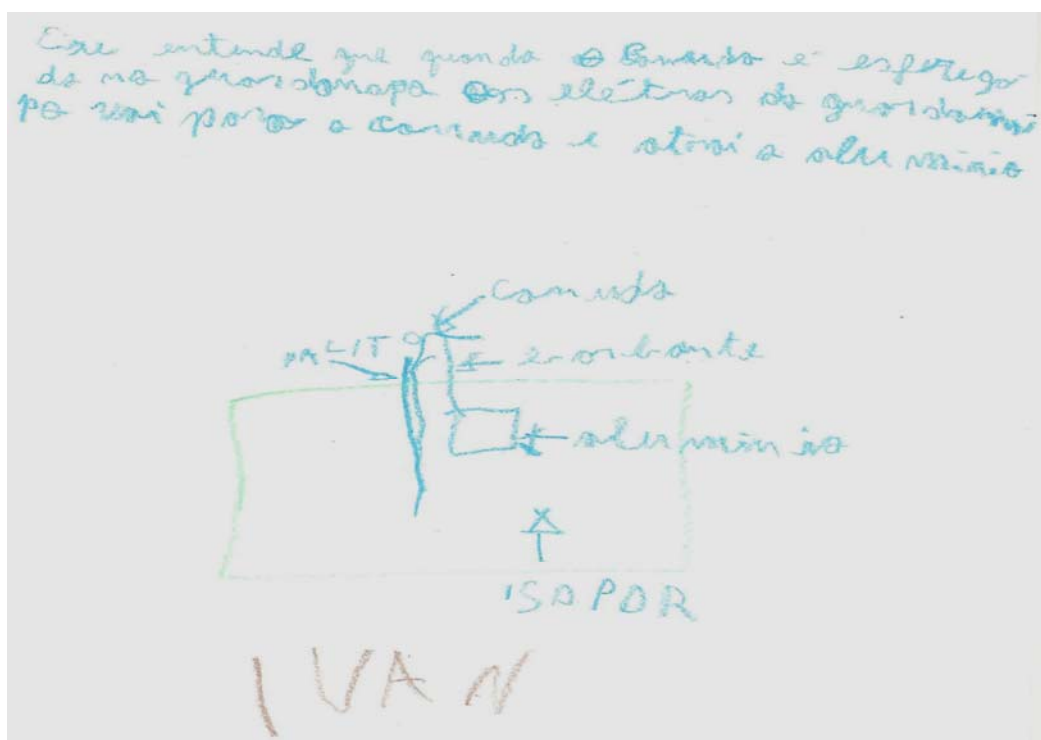 entende que quando o Canudo é esfrega
do no guardanapo os elétrons do guardana
po vai para o canudo e atrai o aluminio
Canudo
PALITO
barbante
aluminio
ISOPOR
IVAN